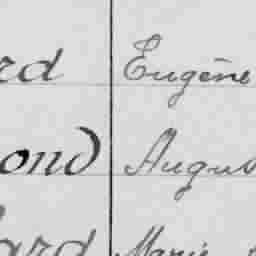 rd Eugène
ond Augus
ard Marie